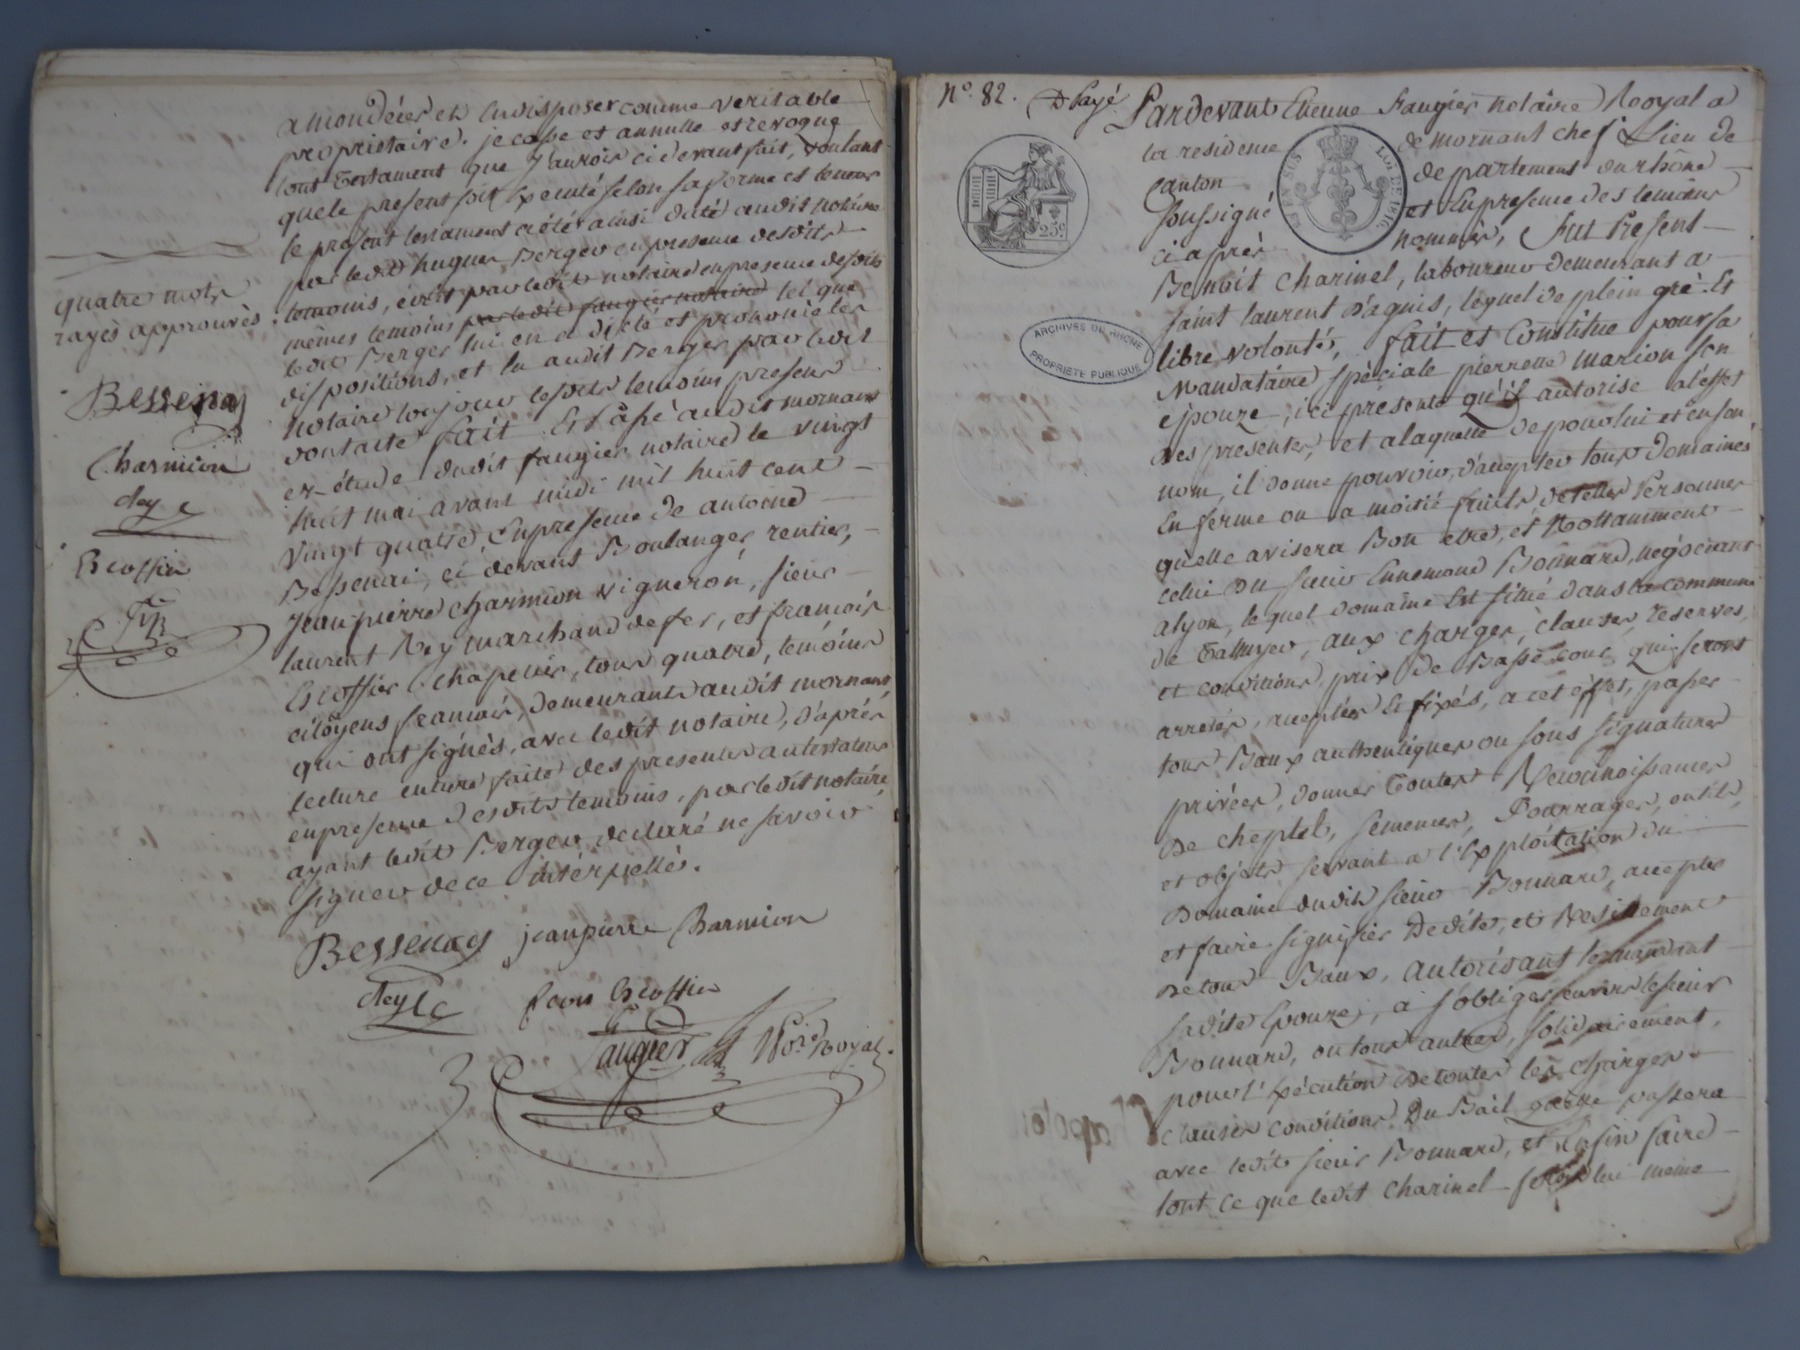 a mon décès et en disposer comme veritable
propriétaire. je casse et annulle et revoque
tout testament que j'aurois ci devant fait, voulant
que le présent soit exécuté selon sa forme et teneur
le présent testament a été ainsi dicté audit notaire
par ledit hugues Berger en presence desdits
temoins, écrit par ledit notaire en presence desdits
mêmes temoins par ledit faugier notaire tel que
ledit Berger lui en a dicté et prononcé les
dispositions, et lu audit Berger par ledit
notaire toujours lesdits temoins presens
dont acte fait Et Passé audit mornant
en étude dudit faugier notaire le vingt
huit mai avant midi mil huit cent
vingt quatre, En presence de antoine
Bessenai, ci devant Boulanger, rentier,
Jean pierre charmion vigneron, sieur
laurent Rey marchand de fer, et francois
Escoffier chapelier, tous quatre, temoins
citoyens francais, demeurants audit mornant,
qui ont signés, avec ledit notaire, d'après
lecture entiere faite des presentes au testateur
en presence desdits temoins, par ledit notaire,
ayant ledit Berger declaré ne savoir
signer de ce intérpellés.
quatre mots
rayés approuvés
Bessenay
Charmion
Rey
Escoffier
Bessenay jeanpierre Charmion
Rey
fcois Escoffier
faugier Nore. Royal.
N°. 82. Payé
Pardevant Etienne Faugier notaire Royal a
la residence de mornant chef Lieu de
Canton departement du rhone
soussigné et En presence des temoins
ci après nommés, Fut Présent
Benoit charinel, laboureur demeurant a
saint laurent D'agnis, lequel de plein gré Et
libre volonté, fait et Constitue pour sa
Mandataire spéciale pierrette Marion son
epouze, ici présente qu'il autorise a l'effet
des presentes, et a laquelle de pour lui et en son
nom, il donne pouvoir, d'accepter tous Domaines
En ferme ou a moitié fruits de telles Personnes
qu'elle avisera Bon etre, et Nottamment
celui du sieur Ennemond Bonnard, negociant
a lyon, lequel domaine Est situé dans la commune
de Talluyer, aux charges, clauses, reserves,
et conditions, prix de Basse cour, qui seront
arretés, acceptés Et fixés, a cet effet, passer
tous Baux authentiques ou sous signatures
privées, donner Toutes Reconnoissances
De cheptel, semences, Fourrages, outils,
et objets servant a l'Exploitation du
Domaine dudit sieur Bonnard, accepter
et faire signifier Dedite, et Resiliement
De tous Baux, autorisant le mandant
sadite Epouze, a s'obliger envers le sieur
Bonnard, ou tous autres, solidairement,
pour l'Exécution de toutes les charges
clauses conditions Du Bail qu'elle passera
avec ledit sieur Bonnard, et Enfin faire
tout ce que ledit charinel feroit lui meme
25c
LOI DE 1816
ARCHIVES DU RHONE
PROPRIÉTÉ PUBLIQUE